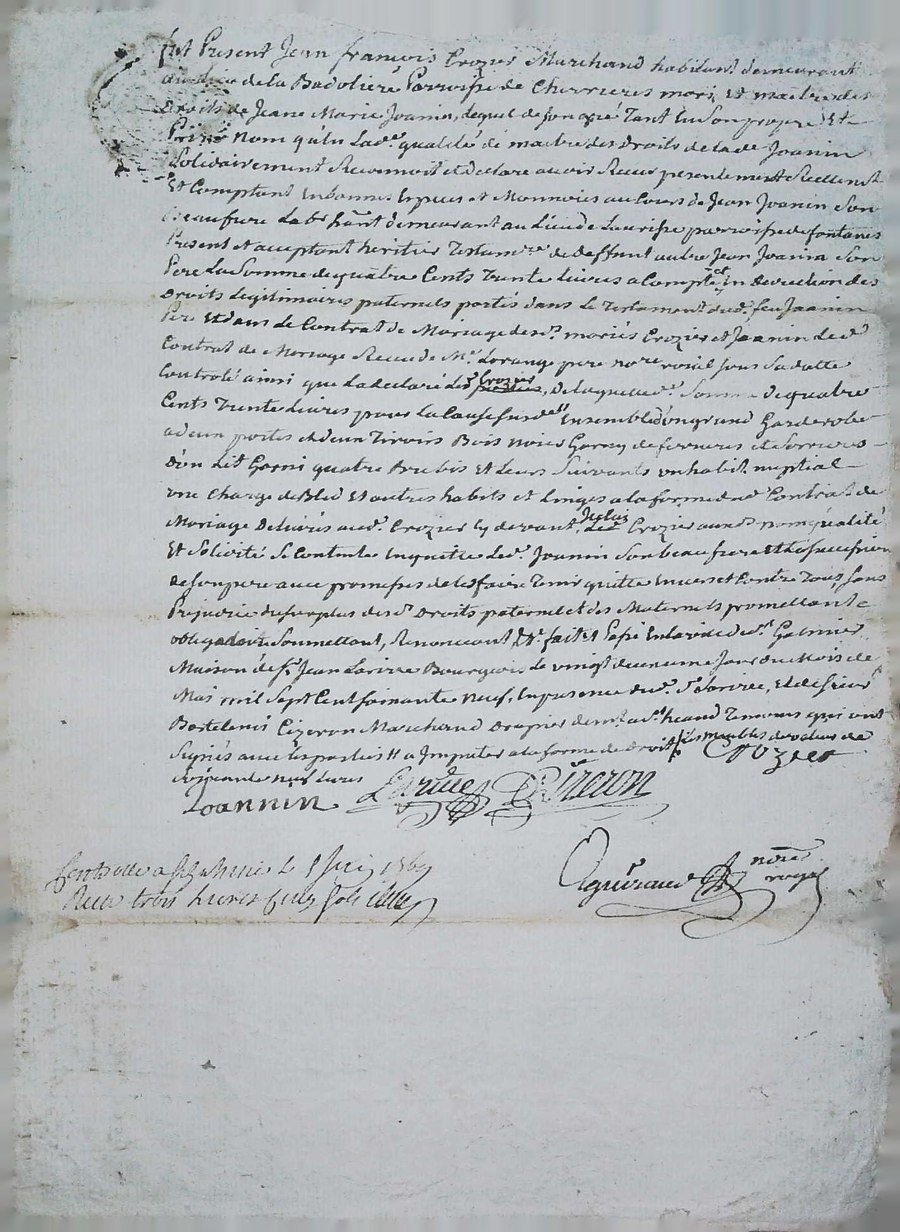 fut Present Jean françois Crozier Marchand habitant demeurant
au lieu de la Badoliere Parroisse de Cherrieres mari, et maitre des
Droits de Jeane Marie Joanin, lequel de son gré tant en son propre Et
Privé nom qu'en lad.e qualité de maitre des Droits de lade Joanin
Solidairement Reconnoit et declare avoir Receu presentement Reellem.t
Et Comptant en bonnes Especes et Monnoies au Cours de Jean Joanin Son
Beaufrere hant demeurant au Lieu de parroisse de fontanes
Present et acceptant heritier Testam.re de deffunt autre Jean Joanin Son
Pere La Somme de quatre Cents Trente Livres a Compte et En Deduction des
Droits Legitimaires paternels portés dans Le Testament dud. feu Joanin
Pere Et dans Le Contrat de Mariage des d. mariés Crozier et Joanin Le d.
Contrat de Mariage Receu de M.e Lorange pere no.re roial sous Sa datte
Controlé ainsi que La declaré Led. Crozier, De laquelle d. Somme de quatre
Cents Trente Livres pour La Cause Susd.e Ensemble d'un grand Garderobe
a deux portes et deux Tiroirs Bois noier Garny de ferrures et Serrures
D'un Lit Garni quatre Brebis Et Leurs Suivants un habit nuptial
une Charge de Bled Et autres habits et Linges a la forme dud. Contrat de
Mariage Delivrés aud. Crozier Cy devant, Crozier aux d. nom qualité
Et Solidité Se Contente En quitte Led. Joanin Son beaufrere Et
de Son pere avec promesses de Les faire Tenir quitte Envers et Contre Tous, Sans
Prejudice du Surplus des d. Droits paternels et des Maternels promettant
obligeant Soumettant, Renoncant &.a fait et Passé En la ville de S.t Galmier
Maison de S.r Jean Larivee Bourgeois Le vingt deuxieme Jour du Mois de
Mai mil Sept Cent Soixante neuf, En presence dud. S.r Larivee, Et de Sieur
Bartelemis Cizeron Marchand Drapier de Temoins qui ont
Signés avec les parties a Imputer a la forme de Droit Les meubles de valeur de
Soixante neuf Livres
Crozier
Joannin Larivee Cizeron
Controlle a le 1769
Receu trois livres
Aguiraud no.re royal